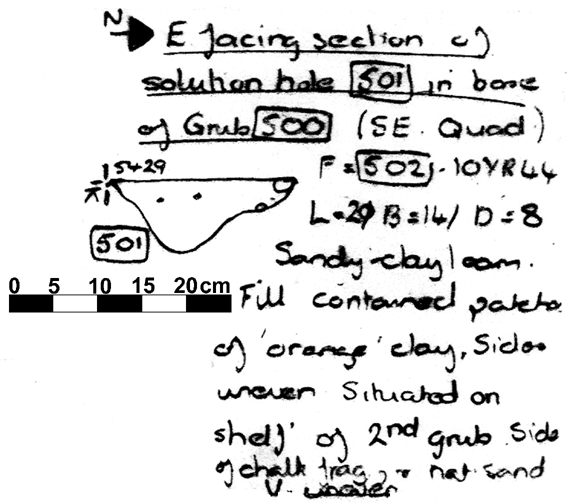 N
E facing section of
solution hole 501 in base
of Grub 500 (SE. Quad)
15429
F = 502 . 10YR44
L=29 B=14/ D=8
501
Sandy-clay loam.
0 5 10 15 20cm
Fill contained patche
of 'orange' clay, Sides
uneven Situated on
shelf' of 2nd grub Side
of chalk frag, nat sand
V. uneven